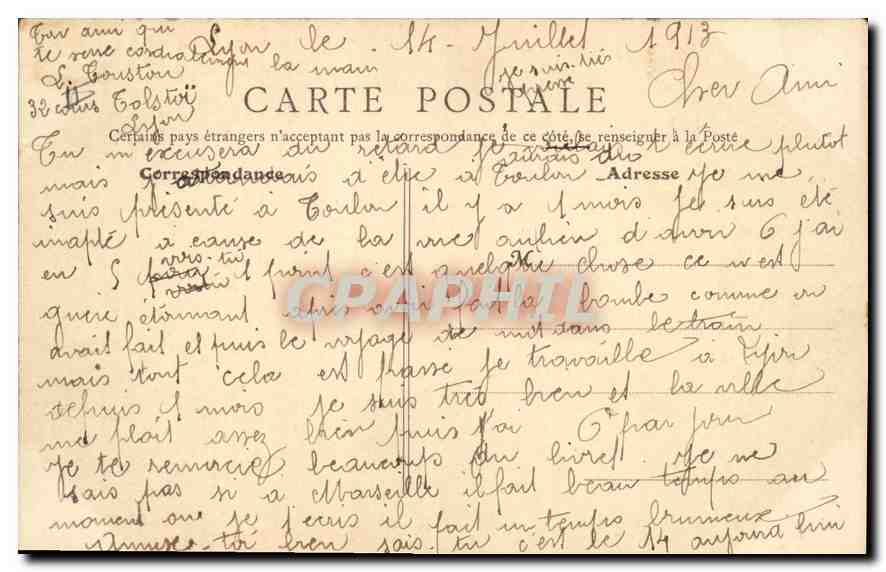 Lyon le 14 Juillet 1913
Cher Ami
CARTE POSTALE
Certains pays étrangers n'acceptant pas la correspondance de ce côté, se renseigner à la Poste
Correspondance
Adresse
Tu m'excusera du retard je t'écrire plutot
aurais dû
mais j' à Toulon Je me
suis présenté à Toulon il y a 1 mois je sus été
inapte a cause de la vue au lieu d'avoir 6 j'ai
en 5 1 point c'est quelque chose ce n'est
vois-tu
guere étonnant apris avoir fait la bombe comme on
avait fait et puis le voyage de nuit dans le train
mais tout cela est passé je travaille à Lyon
depuis 1 mois je suis tres bien et la ville
me plait assez bien puis j'ai 6f par jour
Je te remercie beaucoup du livret. Je ne
sais pas si a Marseille il fait beau temps au
moment que je t'ecris il fait un temps brumeux
Amuse-toi bien sais tu c'est le 14 aujourd'hui
Ton ami qui
te serre cordialement la main
L. Touston
32 cours Tolstoï
Lyon
CPAPHIL